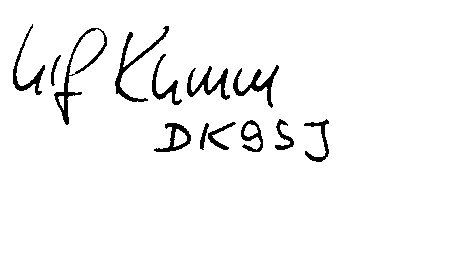 Ulf Kumm
DK9SJ